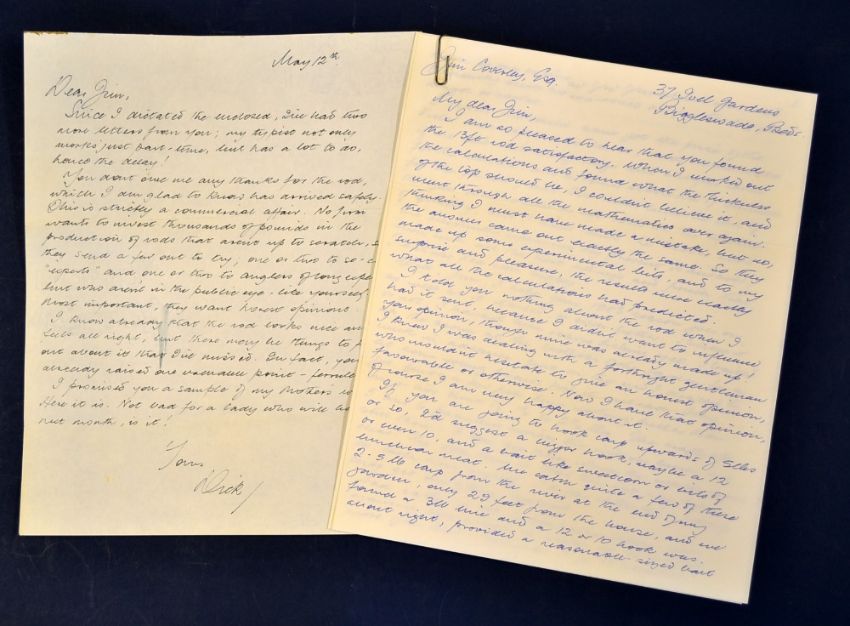 May 12th
Dear Jim,
Since I dictated the enclosed, I've had two
more letters from you; my typist not only
works just part-time, but has a lot to do,
hence the delay!
You don't owe me any thanks for the rod,
which I am glad to know has arrived safely.
This is strictly a commercial affair. No firm
wants to invest thousands of pounds in the
production of rods that aren't up to scratch, so
they send a few out to try, one or two to so-c
"experts" and one or two to anglers of long expe
but who aren't in the public eye - like yourself.
Most important, they want honest opinions.
I know already that the rod looks nice and
feels all right, but there may be things to f
out about it that I've missed. In fact, you
already raised one valuable point - ferrule
I promised you a sample of my mother's
Here it is. Not bad for a lady who will be
next month, is it!
Yours,
Dick
Jim Coverley, Esq.
37 Ivel Gardens
Biggleswade, Beds.
My dear Jim,
I am so pleased to hear that you found
the 13ft rod satisfactory. When I worked out
the calculations and found what the thickness
of the top should be, I couldn't believe it, and
went through all the mathematics over again.
thinking I must have made a mistake, but no,
the answers came out exactly the same. So they
made up some experimental bits, and to my
surprise and pleasure, the results were exactly
what all the calculations had predicted.
I told you nothing about the rod when I
had it sent, because I didn't want to influence
your opinion, though mine was already made up!
I knew I was dealing with a forthright gentleman
who wouldn't hesitate to give an honest opinion,
favourable or otherwise. Now I have that opinion,
of course I am very happy about it.
If you are going to hook carp upwards of 5lbs
or so, I'd suggest a bigger hook, maybe a 12
or even 10, and a bait like sweetcorn or bits of
luncheon meat. We catch quite a few of these
2-3 lb carp from the river at the end of my
garden, only 29 feet from the house, and we
found a 3lb line and a 12 or 10 hook was
about right, provided a reasonable-sized bait